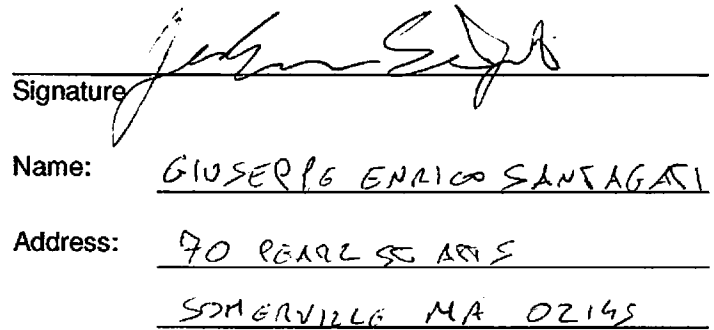 Signature
Name: GIUSEPPE ENRICO SANTAGATI
Address: 70 PEARL ST
SOMERVILLE MA 02145